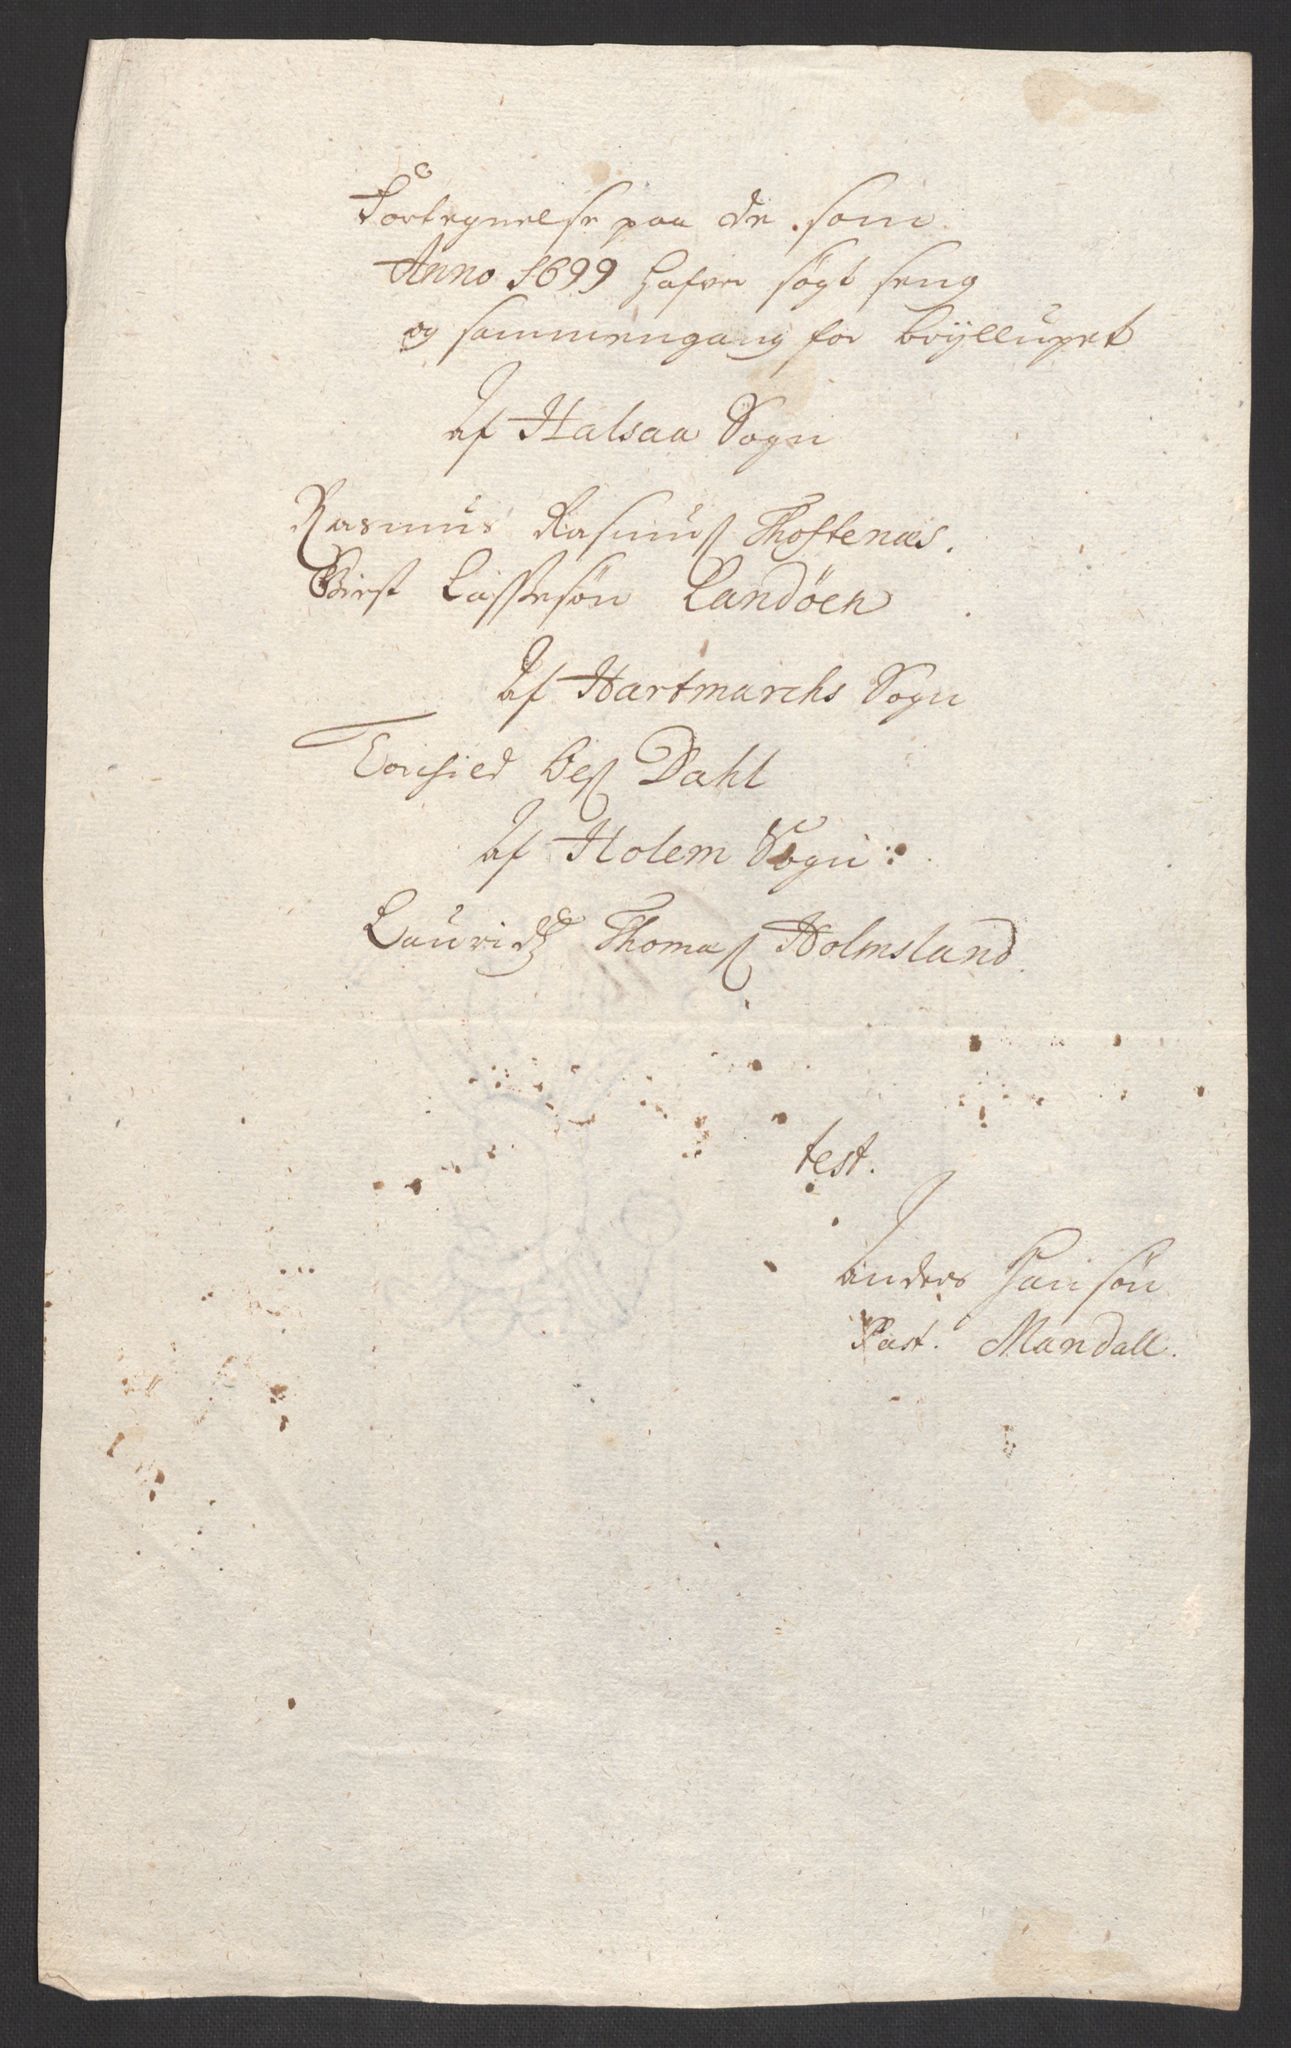 Fortegnelse paa de som
Anno 1699 hafver søgt seng
og sammengang for bryllupet
Af Halsaa Sogn
Rasmus Rasmusß Thoftenæs.
Lassesøn Landöen
Af Hartmarchs Sogn
Dahl
Af Holem Sogn:
Lauridß Thomaß Holmsland
test.
Anders Hansøn
Past. Mandall.